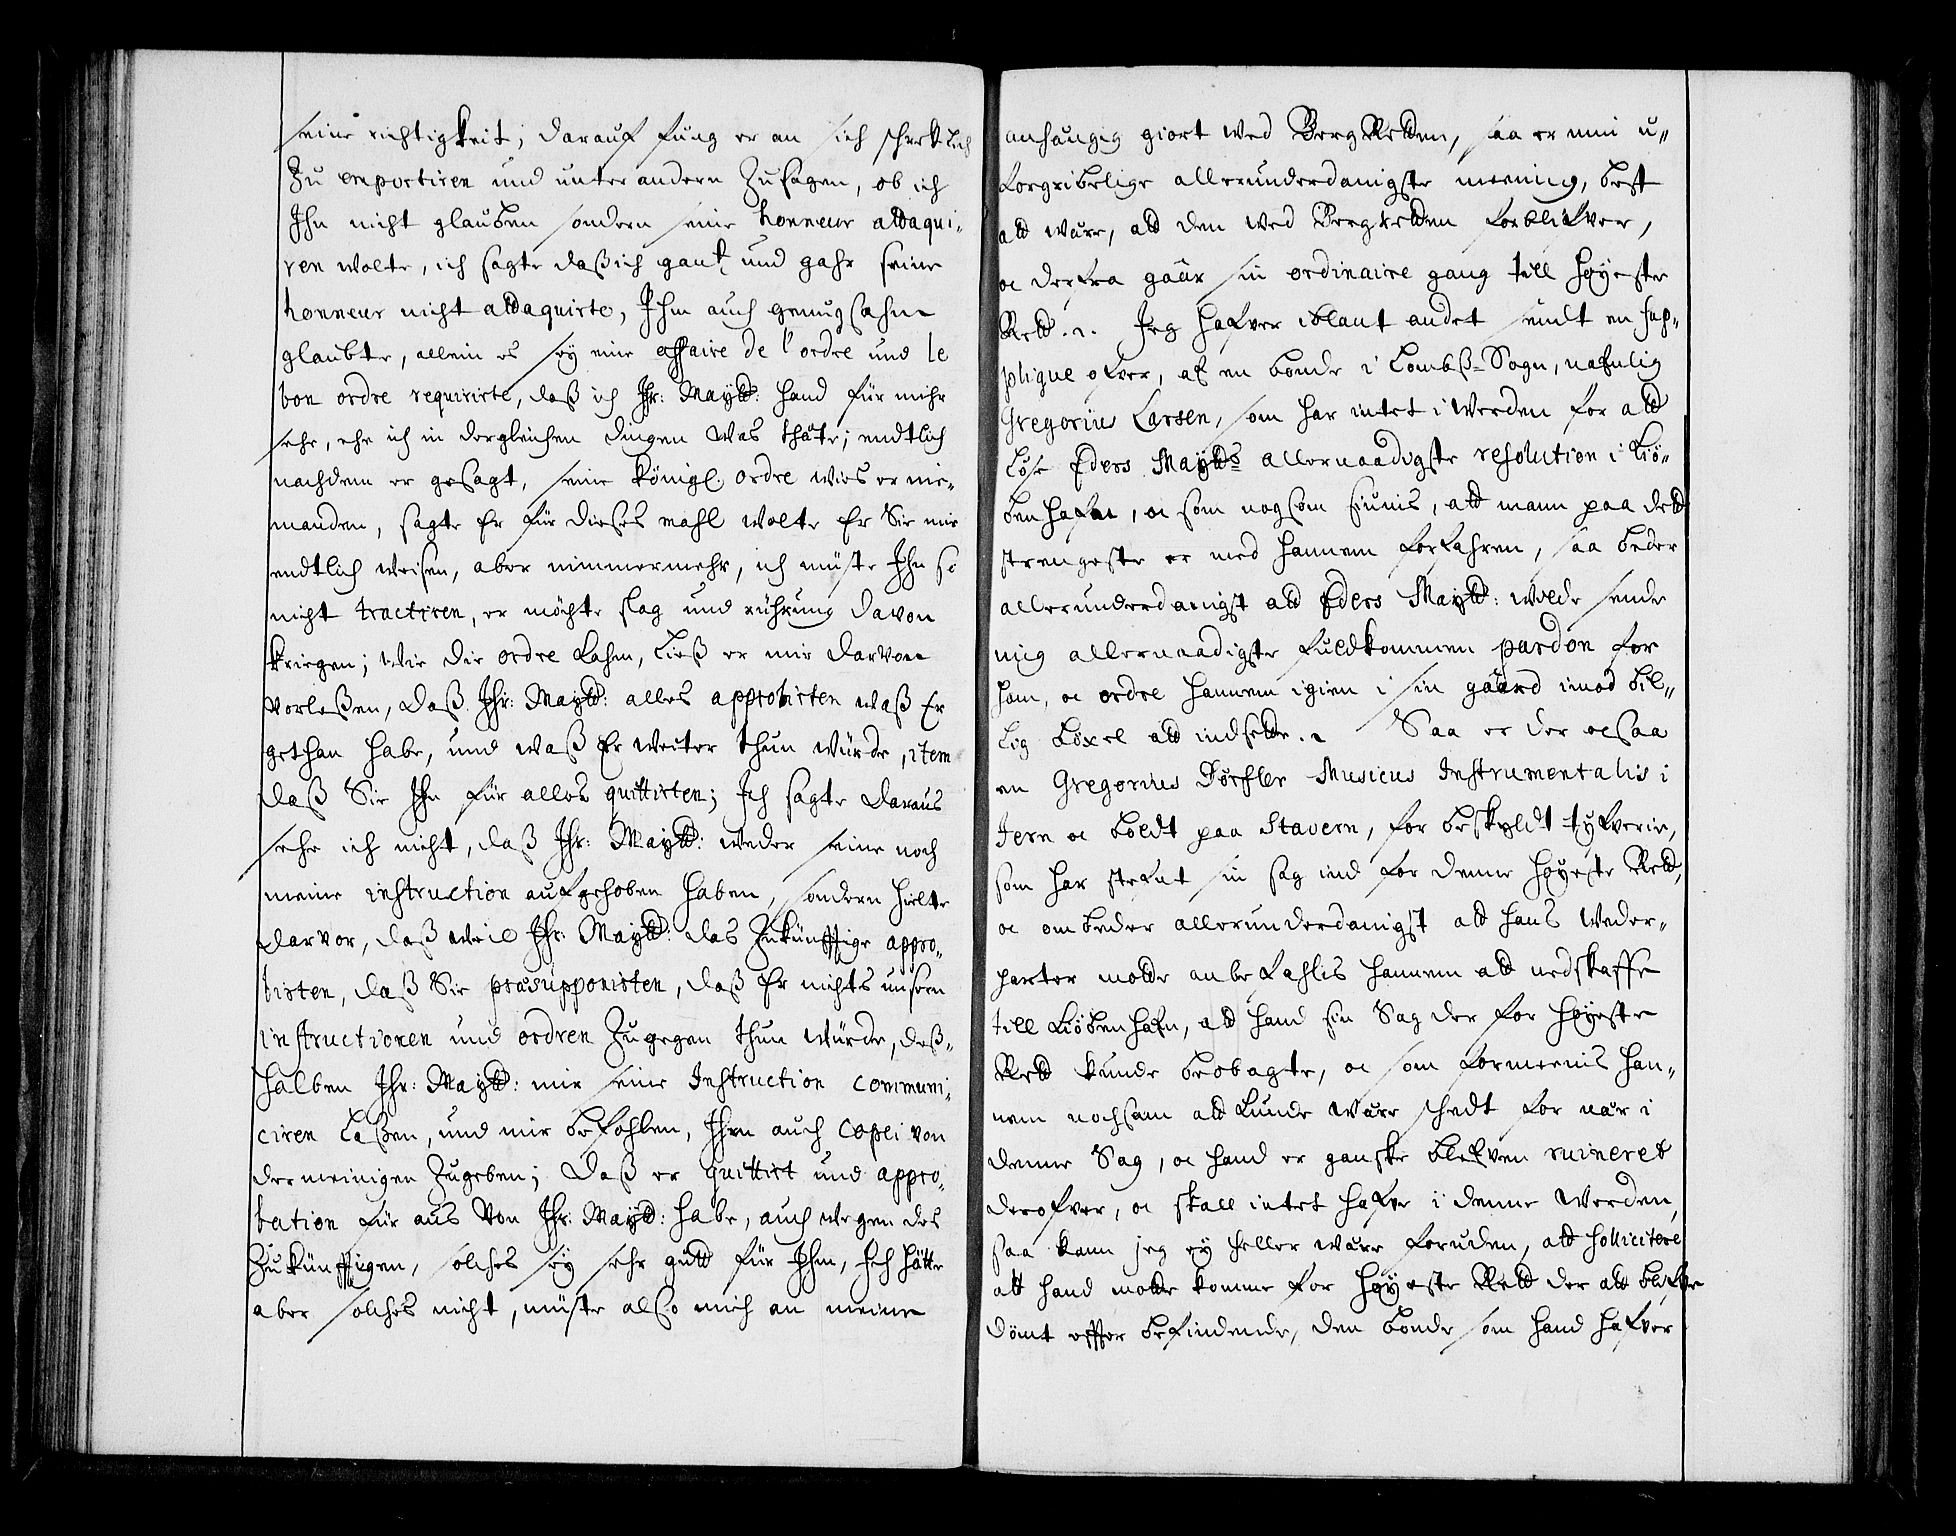 seine richtigkeit; darauf fung er an sich schreklich
Zu emportiren und unter andern Zu sagen, ob ich
Ihn nicht glauben sondern seine honneur attaqui-
ren wolte, ich sagte daß ich gantz und gahr seine
honneur nicht attaquirte, Ihm auch genugsahm
glaubte, allein es sey eine affaire de l'ordre und le
bon ordre requirirte, daß ich Ihr: Maytt: hand für mihr
sehe, ehe ich in dergleichen dingen was thäte; endtlich
nachdem er gesagt, seine Königl. ordre wies er nie-
manden, sagte Er für dieses mahl wolte Er Sie mir
endtlich weisen, aber nimmermehr, ich müste Ihn so
nicht tractiren, er möchte slag und rührung davon
kriegen; Wie die ordre kahm, ließ er mir darvon
vorleßen, daß Ihr: Maytt: alles approbirten waß Er
gethan habe, und waß Er weiter thun würde, item
daß Sie Ihn für alles quittirten; Ich sagte daraus
sehe ich nicht, daß Ihr: Maytt: weder seine noch
meine instruction aufgehoben haben, sondern hielte
darvor, daß weil Ihr: Maytt: das Zukünfftige appro-
birten, daß Sie præsupponirten, daß Er nichts unsern
instructionen und ordren Zugegen thun würde, deß-
halben Ihr: Maytt: mir seine Instruction communi-
ciren laßen, und mir befohlen, Ihm auch copei von
der meinigen Zugeben; daß er quittirt und appro-
bation für aus von Ihr: Maytt: habe, auch wegen des
Zukünfftigen, solches sey sehr gutt für Ihm, Ich hätte
aber solches nicht, müste also mich an meine
anhængig giort wed BergRetten, saa er min u-
forgribelige allerunderdanigste meening, best
att wære, att den wed Bergretten forblifver,
oc derfra gaar sin ordinaire gang till høyeste
Rett. Jeg hafver iblant andet sendt en sup-
plique ofver, af en bonde i Lombß-Sogn, nafnlig
Gregorius Larsen, som har intet i Werden for att
løse Eders Maytts allernaadigste resolution i Kiø-
benhafn, oc som nogsom siunis, att mann paa dett
strengeste er med hannem forfahren, saa beder
allerunderdanigst att Eders Maytt: wilde sende
mig allernaadigste fuldkommen pardon for
ham, oc ordre hannem igien i sin gaard imod bil-
lig løxel att indsette. Saa er der ocsaa
en Gregorius Dörffler Musicus Instrumentalis i
Jern oc boldt paa Stavern, for beskyldt tyfverie,
som har stefnt sin sag ind for denne høyeste Rett,
oc ombeder allerunderdanigst att hans Weder-
parter motte anbefahlis hannem att nedskaffe
till Kiøbenhafn, att hand sin Sag der for høyeste
Rett kunde beobagte, oc som formeenis han-
nem nochsom att kunde være skedt for nær i
denne Sag, oc hand er ganske blefven ruineret
derofver, oc skall intet hafve i denne Werden,
saa kann jeg ey heller wære foruden, att sollicitere
att hand motte komme for høyeste Rett der att blifve
dömt effter befindende, den bonde som hand hafver